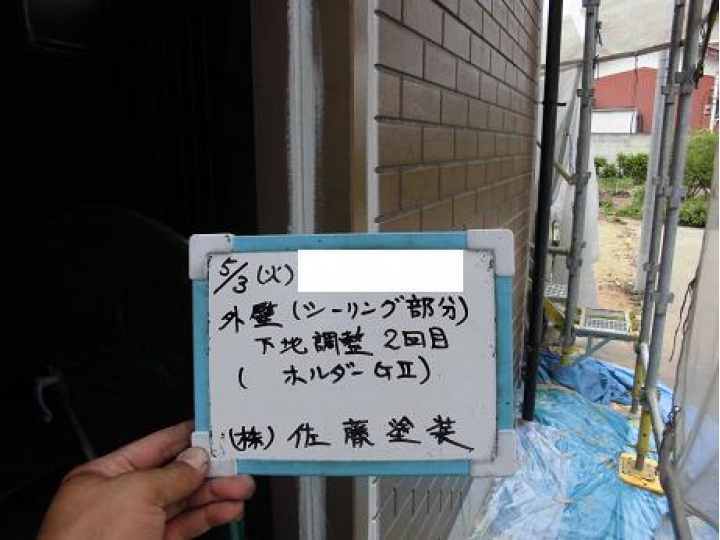 5/3(火)
外壁(シーリング部分)
下地調整 2回目
( ホルダーGⅡ)
(株)佐藤塗装